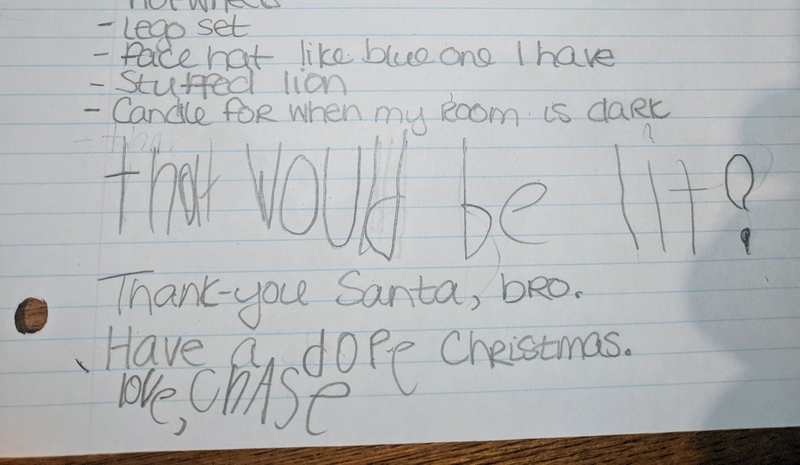 - Lego set
- face hat like blue one I have
- Stuffed lion
- Candle for when my Room is dark
that would be lit!
Thank-you Santa, bro.
Have a dope Christmas.
love, Chase